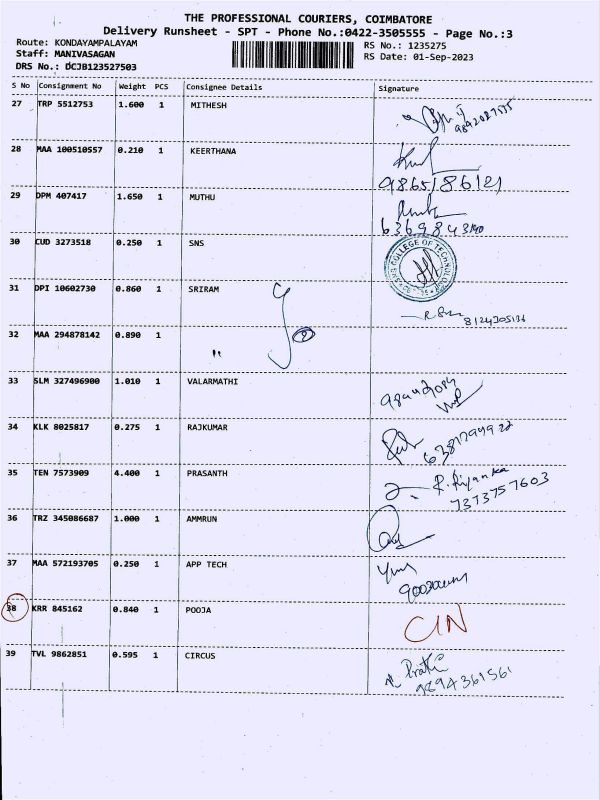 THE PROFESSIONAL COURIERS, COIMBATORE
Delivery Runsheet - SPT - Phone No.:0422-3505555 - Page No.:3
Route: KONDAYAMPALAYAM
Staff: MANIVASAGAN
DRS No.: DCJB123527503
RS No.: 1235275
RS Date: 01-Sep-2023
S No Consignment No Weight PCS Consignee Details Signature
27 TRP 5512753 1.600 1 MITHESH
28 MAA 100510557 0.210 1 KEERTHANA
9865186121
29 DPM 407417 1.650 1 MUTHU
30 CUD 3273518 0.250 1 SNS
COLLEGE OF TECHNOLOGY
31 DPI 10602730 0.860 1 SRIRAM
32 MAA 294878142 0.890 1
"
33 SLM 327496900 1.010 1 VALARMATHI
34 KLK 8025817 0.275 1 RAJKUMAR
35 TEN 7573909 4.400 1 PRASANTH
R. Riyanka
7373757603
36 TRZ 345086687 1.000 1 AMMRUN
37 MAA 572193705 0.250 1 APP TECH
38 KRR 845162 0.840 1 POOJA CIN
39 TVL 9862851 0.595 1 CIRCUS
9894361561